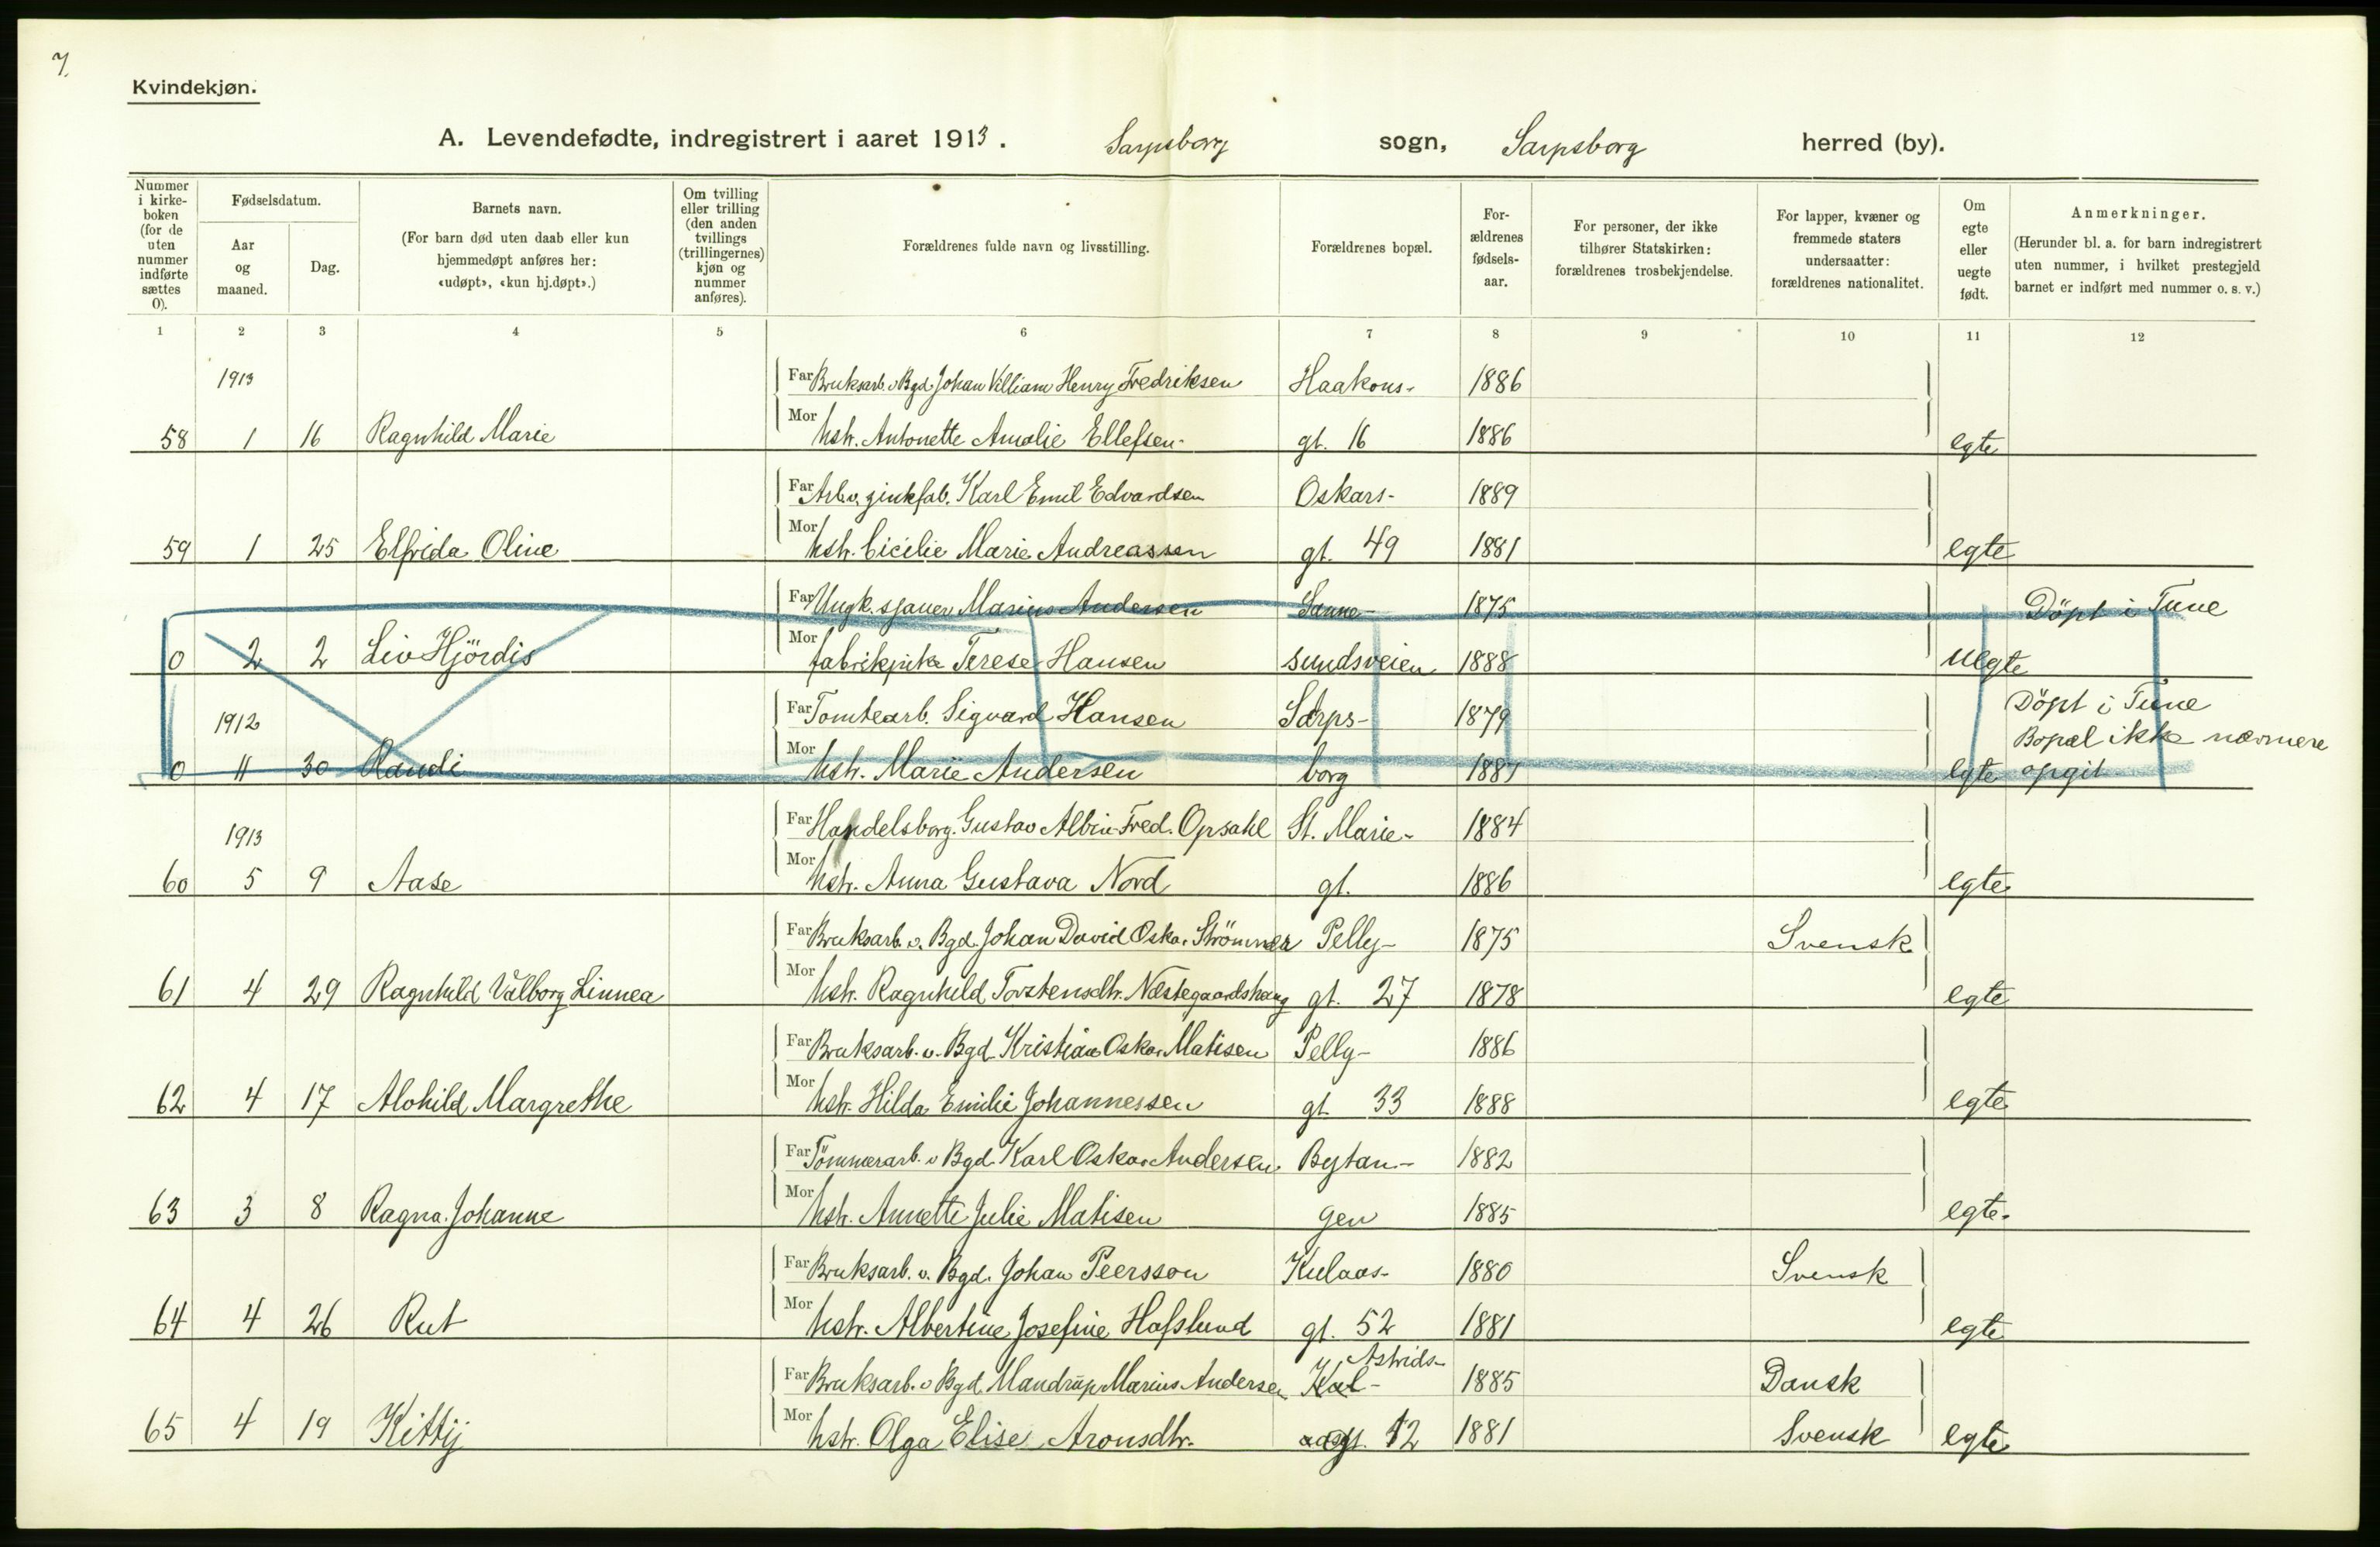 7.
Kvindekjøn.
A. Levendefødte, indregistrert i aaret 1913. Sarpsborg sogn, Sarpsborg herred (by).
Nummer i kirkeboken (for de uten nummer indførte sættes 0).
Fødselsdatum.
Aar og maaned.
Dag.
Barnets navn.
(For barn død uten daab eller kun hjemmedøpt anføres her: «udøpt», «kun hj.døpt».)
Om tvilling eller trilling (den anden tvillings (trillingernes) kjøn og nummer anføres).
Forældrenes fulde navn og livsstilling.
Forældrenes bopæl.
Forældrenes fødselsaar.
For personer, der ikke tilhører Statskirken: forældrenes trosbekjendelse.
For lapper, kvæner og fremmede staters undersaatter: forældrenes nationalitet.
Om egte eller uegte født.
Anmerkninger.
(Herunder bl. a. for barn indregistrert uten nummer, i hvilket prestegjeld barnet er indført med nummer o. s. v.)
1 2 3 4 5 6 7 8 9 10 11 12
1913 Far Bruksarb. v Bgd. Johan Villiam Henry Fredriksen Haakons- 1886
58 1 16 Ragnhild Marie Mor hstr. Antonette Amalie Ellefsen gt. 16 1886 egte
Far Arb. v. zinkfab. Karl Emil Edvardsen Oskars- 1889
59 1 25 Elfrida Oline Mor hstr. Cicilie Marie Andreassen gt. 49 1881 egte
Far Ungk. sjauer Marius Andersen Sanne- 1875 Döpt i Tune
0 2 2 Liv Hjördis Mor fabrikpike Terese Hansen sundsveien 1888 Uegte
1912 Far Tomtearb. Sigvard Hansen Sarps- 1879 Döpt i Tune
Bopæl ikke nærmere
0 11 30 Randi Mor hstr. Marie Andersen borg 1881 egte opgit
1913 Far Handelsborg. Gustav Albin Fred. Opsahl St. Marie- 1884
60 5 9 Aase Mor hstr. Anna Gustava Nord gt. 1886 egte
Far Bruksarb. v. Bgd. Johan David Oskar Strömner Pelly- 1875 Svensk
61 4 29 Ragnhild Valborg Linnea Mor hstr. Ragnhild Torstensdtr. Næstegaardshaug gt. 27 1878 egte
Far Bruksarb. v. Bgd. Kristian Oskar Matisen Pelly- 1886
62 4 17 Alohild Margrethe Mor hstr. Hilda Emilie Johannessen gt 33 1888 egte
Far Tömmerarb. v Bgd. Karl Oskar Andersen Bytan- 1882
63 3 8 Ragna Johanne Mor hstr. Annette Julie Matisen gen 1885 egte
Far Bruksarb. v. Bgd. Johan Peersson Kulaas- 1880 Svensk
64 4 26 Rut Mor hstr. Albertine Josefine Hafslund gt. 52 1881 egte
Astrids-
Far Bruksarb. v Bgd. Mandrup Marius Andersen Kul- 1885 Dansk
65 4 19 Kittij Mor hstr. Olga Elise Aronsdtr. gt. 12 1881 Svensk egte